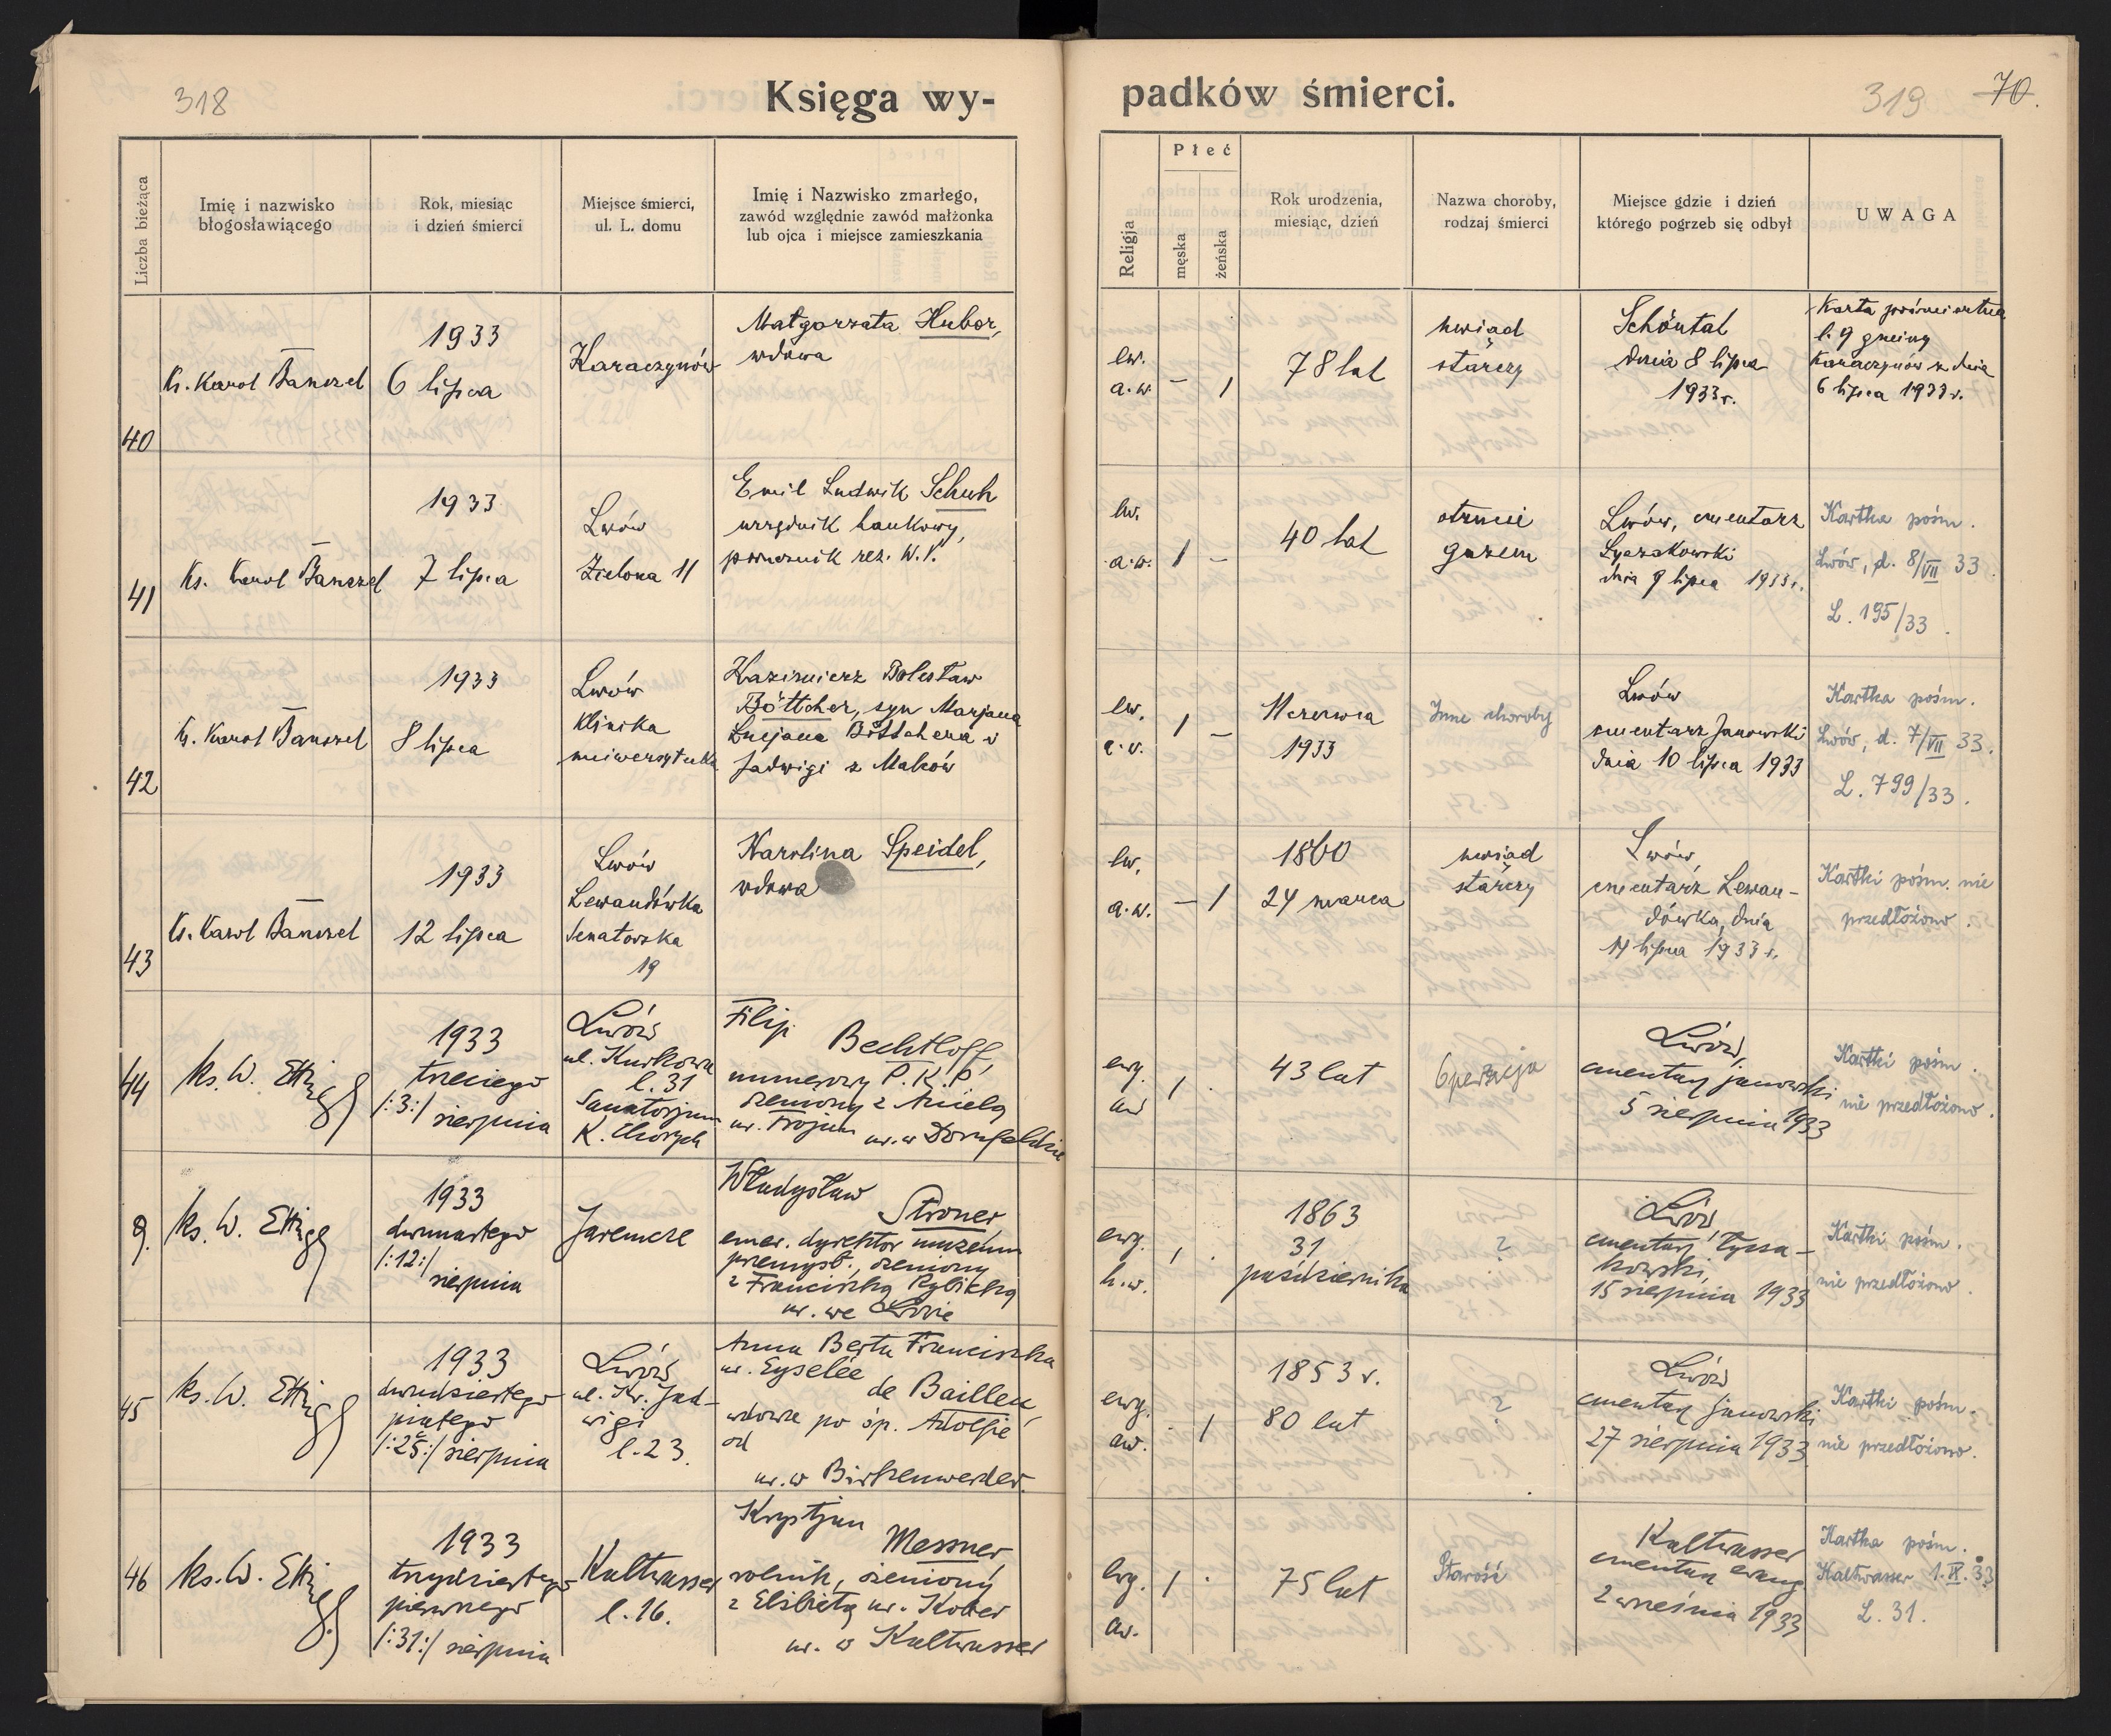 318
Księga wy-
padków śmierci.
319 70.
Liczba bieżąca
Imię i nazwisko
błogosławiącego
Rok, miesiąc
i dzień śmierci
Miejsce śmierci,
ul. L. domu
Imię i Nazwisko zmarłego,
zawód względnie zawód małżonka
lub ojca i miejsce zamieszkania
Religja
Płeć
męska
żeńska
Rok urodzenia,
miesiąc, dzień
Nazwa choroby,
rodzaj śmierci
Miejsce gdzie i dzień
którego pogrzeb się odbył
UWAGA
40
Ks. Karol Banszel
1933
6 lipca
Karaczynów
Małgorzata Huber,
wdowa
ew.
a.w.
– 1
78 lat
uwiąd
starczy
Schöntal
dnia 8 lipca
1933 r.
Karta pośmiertna
l. 9 gminy
Karaczynów z dnia
6 lipca 1933 r.
41
Ks. Karol Banszel
1933
7 lipca
Lwów
Zielona 11
Emil Ludwik Schuh
urzędnik bankowy,
porucznik rez. W.P.
ew.
a.w.
1 –
40 lat
otrucie
gazem
Lwów, cmentarz
Łyczakowski
dnia 9 lipca 1933 r.
Kartka pośm.
Lwów, d. 8/VII 33.
L. 195/33.
42
Ks. Karol Banszel
1933
8 lipca
Lwów
klinika
uniwersytecka
Kazimierz Bolesław
Böttcher, syn Marjana
Lucjana Böttchera i
Jadwigi z Maków
ew.
a.w.
1 –
11 czerwca
1933
Inne choroby
Lwów
cmentarz Janowski
dnia 10 lipca 1933
Kartka pośm.
Lwów, d. 7/VII 33.
L. 799/33.
43
Ks. Karol Banszel
1933
12 lipca
Lwów
Lewandówka
Senatorska
19
Karolina Speidel,
wdowa
ew.
a.w.
– 1
1860
24 marca
uwiąd
starczy
Lwów,
cmentarz Lewan-
dówka, dnia
14 lipca 1933 r.
Kartki pośm. nie
przedłożono.
44
ks. W. Ettinger
1933
trzeciego
/:3:/ sierpnia
Lwów
ul. Kurkowa
l. 31
Sanatorjum
K. Chorych
Filip
Bechtloff,
numerowy P.K.P,
żeniony z Anielą
ur. Trojan ur. w Dornfeldzie
ewg.
aw
1 .
43 lat
Operacja
Lwów,
cmentarz janowski
5 sierpnia 1933
Kartki pośm.
nie przedłożono.
9.
ks. W. Ettinger
1933
dwunastego
/:12:/
sierpnia
Jaremcze
Władysław
Stroner,
emer. dyrektor muzeum
przemysł., żeniony
z Franciszką Rybicką
ur. we Lwowie
ewg.
h.w.
1 .
1863
31
października
?
Lwów,
cmentarz Łycza-
kowski,
15 sierpnia 1933
Kartki pośm.
nie przedłożono.
45
ks. W. Ettinger
1933
dwudziestego
piątego
/:25:/ sierpnia
Lwów
ul. Kr. Jad-
wigi
l. 23.
Anna Berta Franciszka
ur. Eyselée
de Bailleu,
wdowa po śp. Adolfie
od
ur. w Birkenwerder.
ewg.
aw.
. 1
1853 r.
80 lat
?
Lwów
cmentarz janowski
27 sierpnia 1933
Kartki pośm.
nie przedłożono.
46
ks. W. Ettinger
1933
trzydziestego
pierwszego
/:31:/ sierpnia
Kaltwasser
l. 16.
Krystjan
Messner,
rolnik, żeniony
z Elżbietą ur. Kober
ur. w Kaltwasser
ewg.
aw.
1 .
75 lat
Starość
Kaltwasser
cmentarz ewang
2 września 1933
Kartka pośm.
Kaltwasser 1.IX.33
L. 31.